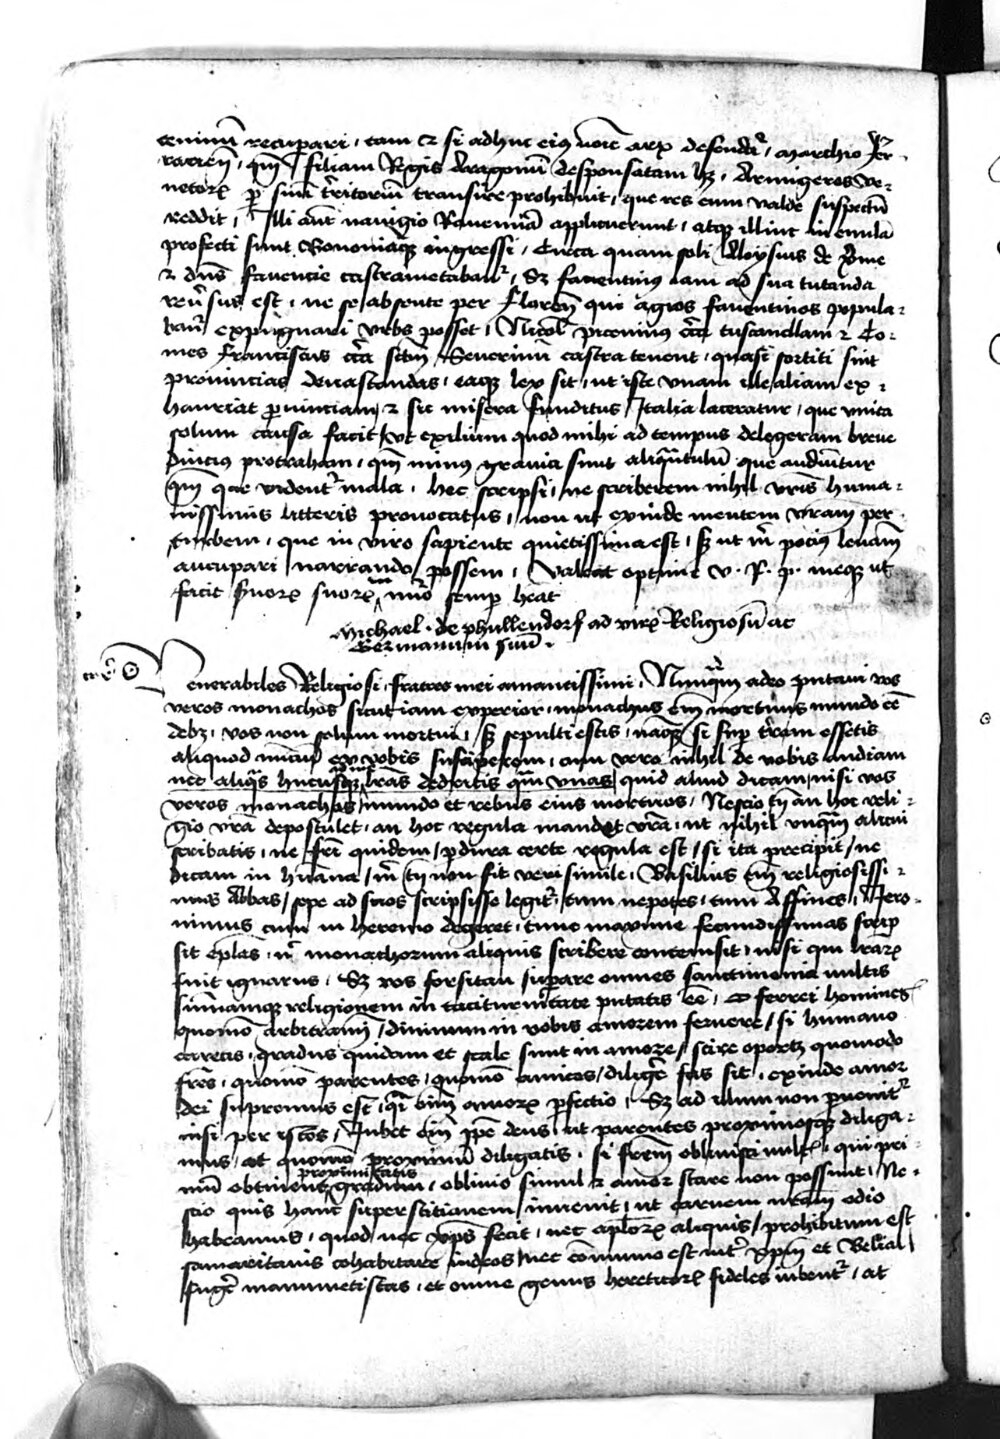 cenimū recupari , tam ⁊ si adhuc eiꝯ noīe arx defendat͛ , Marchio fer-
rarien̄ , qm̄ filiam Regis Aragonū desponsatam hꝫ , Armigeros ve-
netoꝝ ꝑ suū t͛ritoriū transire prohibuit , que res eum valde suspectū
reddit , Illi aūt nauigio Rauennā applicuerunt , atqꝫ illinc in emulā
profecti sunt Bononiāqꝫ ingressi , Circa quam soli Aloysius de Ꝟme
⁊ dn̄s fauencie castrametabant͛ , Sꝫ fauentinus iam ad sua tutanda
reu͛sus est , ne se absente per Floren̄ qui agros fauentinos popula-
bant͛ expugnari vrbs posset , Nicol̄ piceninus c͛ca tuscanellam ⁊ Co-
mes franciscus c͛ca sctm̄ Seuerinū castra tenent , quasi sortiti sint
prouincias deuastandas , eaqꝫ lex sit , ut iste vnam ille aliam ex-
hauriat ꝓuinciam ⁊ sic misera funditus Italia laceratur , que vnica
solum causa facit ut exilium quod mihi ad tempus delegeram breue
diucius protraham , qm̄ minꝯ grauia sunt aliqn̄tulū que audiūtur
qm̄ que vident͛ mala , hec scripsi , ne scriberem nihil vr̄is huma-
nissimis litteris prouocatus , non ut exinde mentem vr̄am per-
turbem , que in viro sapiente quietissima est , sꝫ ut m̄ pociꝯ leuam̄
aucupari narrando possem , Valeat optime v. p. p. meqꝫ ut
facit suoꝝ suoꝝ m̄ nūo semꝑ heāt
Michael . de phullendorf ad viꝝ Religiosū ac
Germanum suū .
Venerabiles Religiosi , fratres mei amantissimi , Nunqm̄ adeo putaui vos
veros monachos sicut iam experior , monachus em̄ mortuus mundo eē
debꝫ , vos non solum mortui , sꝫ sepulti estis , nāqꝫ si suꝑ t͛ram essetis
aliquod nūciū ex vobis susciperem , cum vero nihil de vobis audiam
nec aliqs̄ hucusqꝫ lr̄as dederitis qm̄ vnas quid aliud dicam , nisi vos
veros monachos , mundo et rebus eius mortuos , Nescio tn̄ an hoc reli-
gio vr̄a depostulet , an hoc regula mandet vr̄a , ut nihil vnqm̄ alicui
scribatis , ne fr̄i quidem , ꝑdura certe regula est , si ita precipit , ne
dicam in hūana , m̄ tn̄ non fit veri simile , Basilius em̄ religiosissi-
mus Abbas , sepe ad suos scripsisse legit͛ , tum nepotes , tum Affines , Jero-
nimus cum in heremo degeret , tunc maxime fecundissimas scrip
sit ep̄las , n͛ monachorum aliquis scribere contempsit , nisi qui lr̄aꝝ
fuit ignarus , Sꝫ vos forsitan suꝑare omnes sanctimonia vultis
sūmamqꝫ religionem in taciturnitate putatis eē , O ferrei homines
quomō arbitramī , diuinum in vobis amorem feruere , si humano
caretis , gradus quidam et scale sunt in amore , scire oportꝫ quomodo
fr̄es , quomō parentes , quomō amicos , diliger̄ fas sit , exinde amor
dei supremus est , qr̄ om̄i amoꝝ ꝑfectio , Sꝫ ad illum non ꝑuenit͛
nisi per istos , Jubet em̄ ip̄e deus , ut parentes proximosqꝫ diliga-
mus , at quomo proximū diligatis , si fr̄em obliuisci vultꝭ , qui pri-
proximitatis
mū obtinens gradum , obliuio simul ⁊ amor stare non possunt , Ne-
scio quis hanc superstitionem inuenit , ut carnem nr̄am odio
habeamus , quod nec xp̄s fecit , nec apl̄oꝝ aliquis , prohibitum est
samaritanis cohabitare iudeos , nec cōmunio est int͛ xp̄m et Belial
fuger̄ maumetistas , et omne genus hereticoꝝ fideles iubent͛ , at